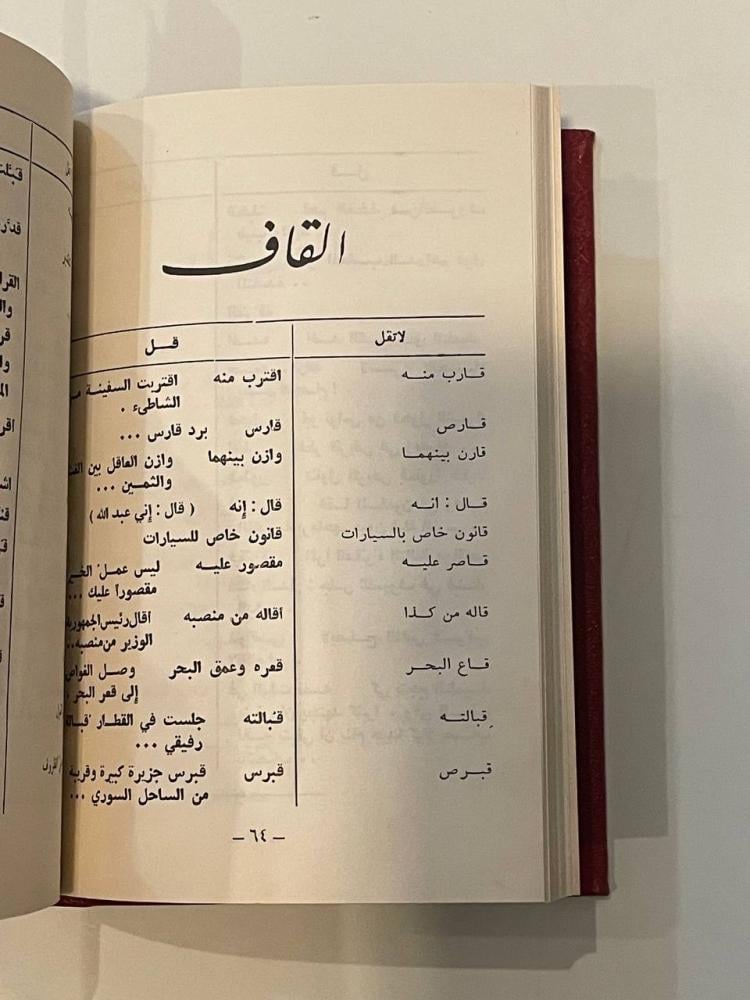 القاف
لا تقل قــل
قــارب منــه اقترب منه اقتربت السفينة
الشاطىء .
قــارص قارس برد قارس ...
قارن بينهمـا وازن بينهما وازن العاقل بين
والثمين ...
قــال : انــه قال : إنه ( قال : إني عبد الله )
قانون خاص بالسيارات قانون خاص للسيارات
قــاصر عليــه مقصور عليــه ليس عمل
مقصوراً عليك ...
قاله من كــذا أقاله من منصبه أقال رئيس الجمهورية
الوزير من منصبه ..
قــاع البحــر قعره وعمق البحر وصــل الغواص
إلى قعر البحر .
قِبالتــه قُبالته جلست في القطار قبالة
رفيقي ...
قبــرص قبرس قبرس جزيرة كبيرة وقريبة
من الساحل السوري ...
— ٦٤ —